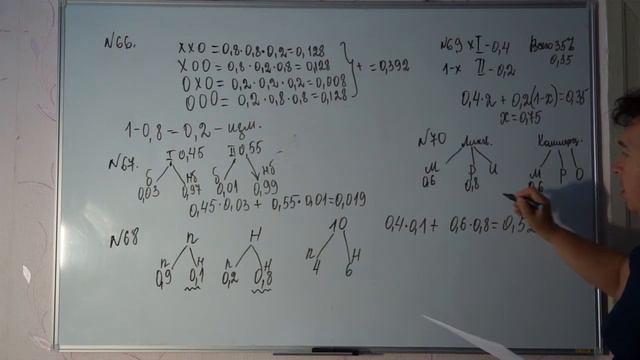 №66.
XXO = 0,8·0,8·0,2 = 0,128
XOO = 0,8·0,2·0,8 = 0,128
OXO = 0,2·0,2·0,2 = 0,008
OOO = 0,2·0,8·0,8 = 0,128
+ = 0,392
1-0,8 = 0,2 – изм.
№67.
I 0,45 II 0,55
б нб б нб
0,03 0,97 0,01 0,99
0,45·0,03 + 0,55·0,01 = 0,019
№68
П Н 10
П Н П Н П Н
0,9 0,1 0,2 0,8 4 6
0,4·0,1 + 0,6·0,8 = 0,5
№69 x I – 0,4 Всего 35%
1-x II – 0,2 0,35
0,4·x + 0,2(1-x) = 0,35
x = 0,75
№70
М Р И М Р О
0,6 0,8 0,6